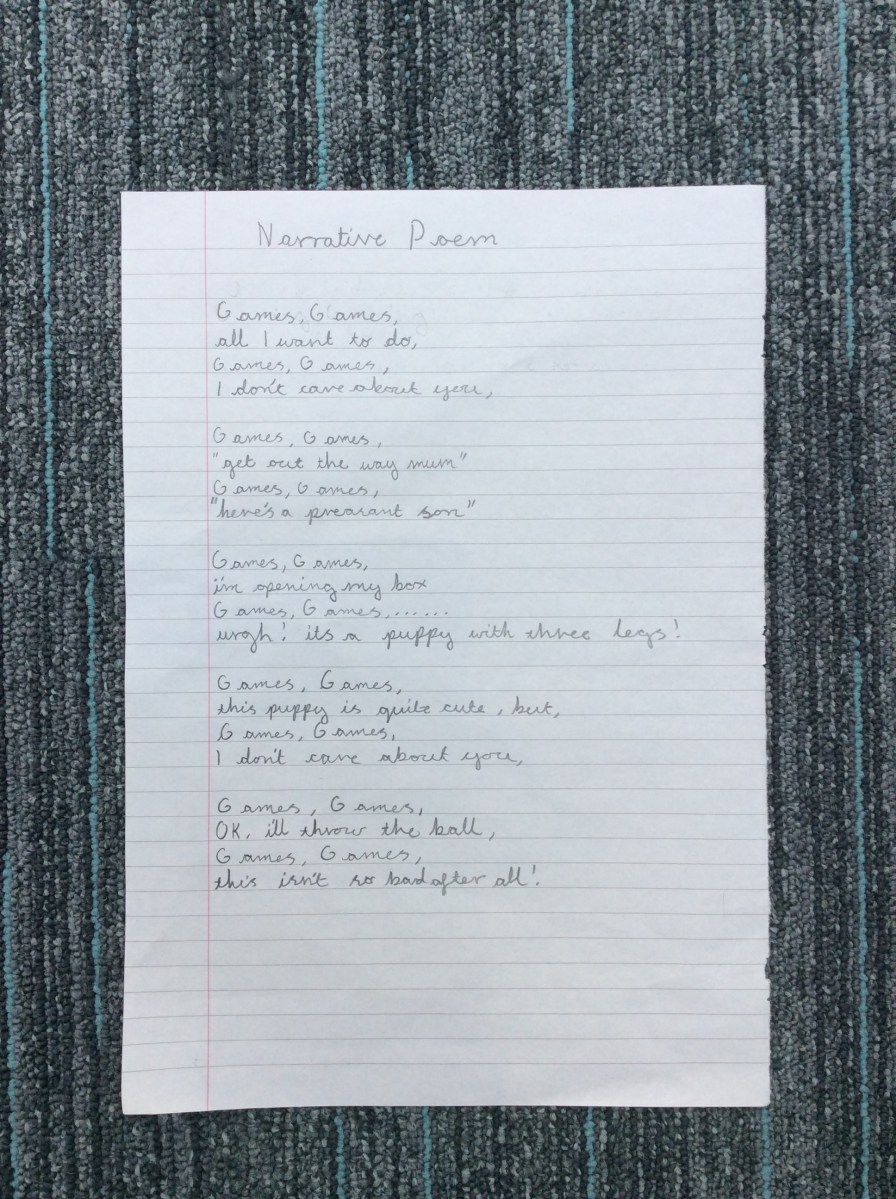 Narrative Poem
Games, Games,
all I want to do,
Games, Games,
I don't care about you,
Games, Games,
"get out the way mum"
Games, Games,
"here's a preasant son"
Games, Games,
i'm opening my box
Games, Games,......
urgh! its a puppy with three legs!
Games, Games,
this puppy is quite cute, but,
Games, Games,
I don't care about you,
Games, Games,
OK, i'll throw the ball,
Games, Games,
this isn't so bad after all!